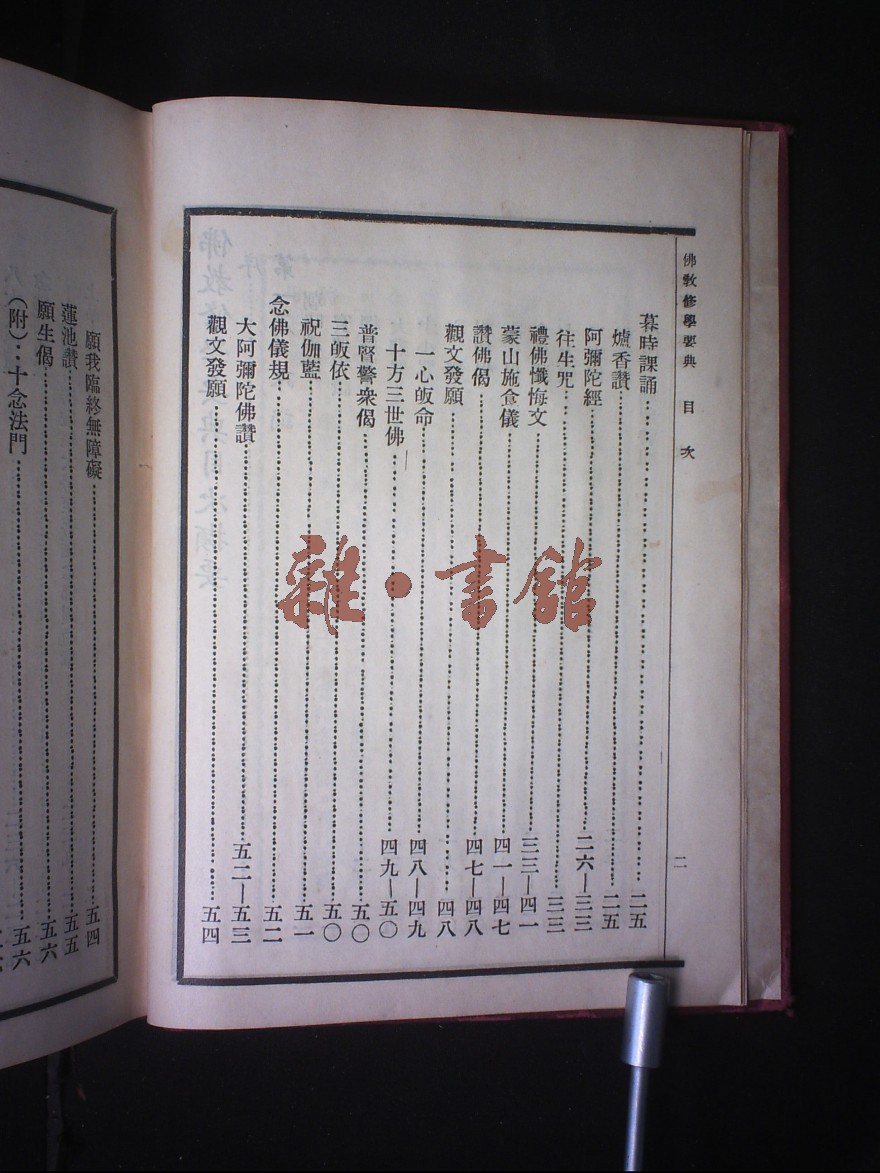 佛教修學要典 目次 二
暮時課誦 二五
爐香讚 二五
阿彌陀經 二六—三三
往生咒 三三
禮佛懺悔文 三三—四一
蒙山施食儀 四一—四七
讚佛偈 四七—四八
觀文發願 四八
一心皈命 四八—四九
十方三世佛 四九—五〇
普賢警衆偈 五〇
三皈依 五〇
祝伽藍 五一
念佛儀規 五二
大阿彌陀佛讚 五二—五三
觀文發願 五四
願我臨終無障礙 五四
蓮池讚 五五
願生偈 五六
(附)：十念法門 五六
雜·書館